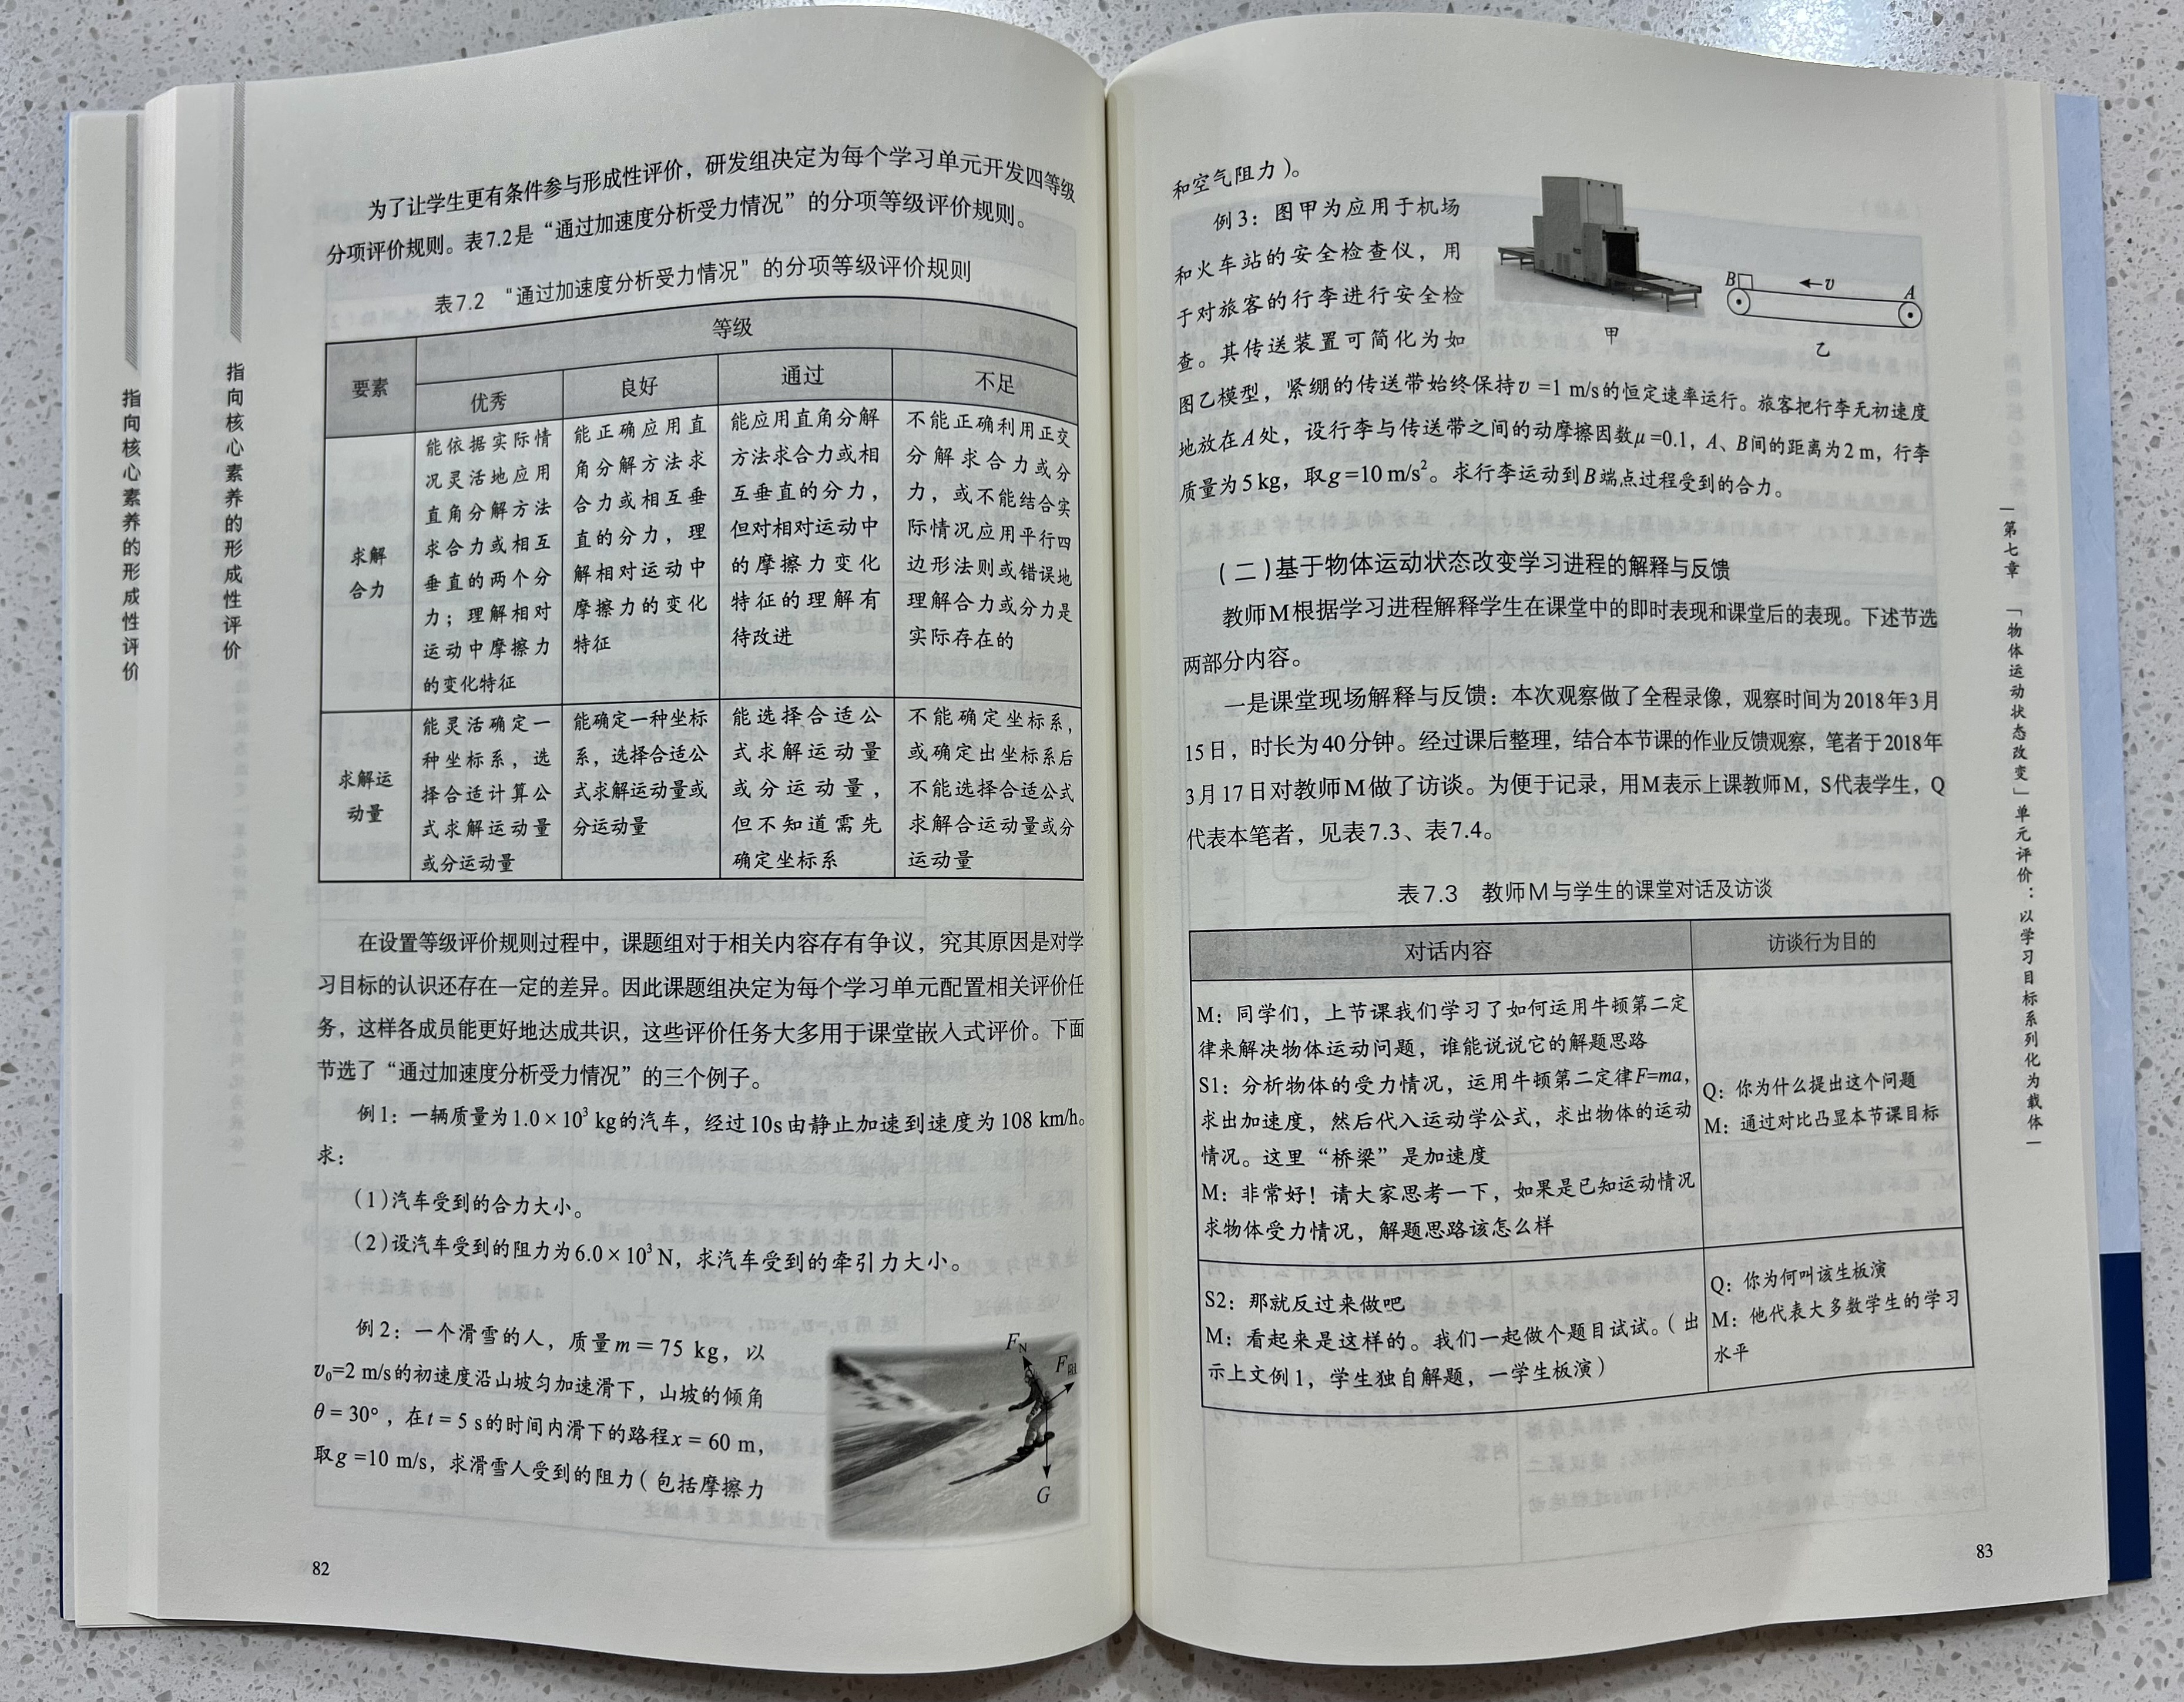 指向核心素养的形成性评价
指向核心素养的形成性评价
为了让学生更有条件参与形成性评价，研发组决定为每个学习单元开发四等级
分项评价规则。表7.2是“通过加速度分析受力情况”的分项等级评价规则。
表7.2 “通过加速度分析受力情况”的分项等级评价规则
要素
等级
优秀
良好
通过
不足
求解
合力
能依据实际情
况灵活地应用
直角分解方法
求合力或相互
垂直的两个分
力；理解相对
运动中摩擦力
的变化特征
能正确应用直
角分解方法求
合力或相互垂
直的分力，理
解相对运动中
摩擦力的变化
特征
能应用直角分解
方法求合力或相
互垂直的分力，
但对相对运动中
的摩擦力变化
特征的理解有
待改进
不能正确利用正交
分解求合力或分
力，或不能结合实
际情况应用平行四
边形法则或错误地
理解合力或分力是
实际存在的
求解运
动量
能灵活确定一
种坐标系，选
择合适计算公
式求解运动量
或分运动量
能确定一种坐标
系，选择合适公
式求解运动量或
分运动量
能选择合适公
式求解运动量
或分运动量，
但不知道需先
确定坐标系
不能确定坐标系，
或确定出坐标系后
不能选择合适公式
求解合运动量或分
运动量
在设置等级评价规则过程中，课题组对于相关内容存有争议，究其原因是对学
习目标的认识还存在一定的差异。因此课题组决定为每个学习单元配置相关评价任
务，这样各成员能更好地达成共识，这些评价任务大多用于课堂嵌入式评价。下面
节选了“通过加速度分析受力情况”的三个例子。
例1：一辆质量为1.0×10³ kg的汽车，经过10s由静止加速到速度为108 km/h。
求：
（1）汽车受到的合力大小。
（2）设汽车受到的阻力为6.0×10³ N，求汽车受到的牵引力大小。
例2：一个滑雪的人，质量m = 75 kg，以
v₀=2 m/s的初速度沿山坡匀加速滑下，山坡的倾角
θ = 30°，在t = 5 s的时间内滑下的路程x = 60 m，
取g =10 m/s，求滑雪人受到的阻力（包括摩擦力
F_N
F阻
G
82
和空气阻力）。
例3：图甲为应用于机场
和火车站的安全检查仪，用
于对旅客的行李进行安全检
查。其传送装置可简化为如
图乙模型，紧绷的传送带始终保持v =1 m/s的恒定速率运行。旅客把行李无初速度
地放在A处，设行李与传送带之间的动摩擦因数μ=0.1，A、B间的距离为2 m，行李
质量为5 kg，取g=10 m/s²。求行李运动到B端点过程受到的合力。
甲
B
v
A
乙
（二）基于物体运动状态改变学习进程的解释与反馈
教师M根据学习进程解释学生在课堂中的即时表现和课堂后的表现。下述节选
两部分内容。
一是课堂现场解释与反馈：本次观察做了全程录像，观察时间为2018年3月
15日，时长为40分钟。经过课后整理，结合本节课的作业反馈观察，笔者于2018年
3月17日对教师M做了访谈。为便于记录，用M表示上课教师M，S代表学生，Q
代表本笔者，见表7.3、表7.4。
表7.3 教师M与学生的课堂对话及访谈
对话内容
访谈行为目的
M：同学们，上节课我们学习了如何运用牛顿第二定
律来解决物体运动问题，谁能说说它的解题思路
S1：分析物体的受力情况，运用牛顿第二定律F=ma，
求出加速度，然后代入运动学公式，求出物体的运动
情况。这里“桥梁”是加速度
M：非常好！请大家思考一下，如果是已知运动情况
求物体受力情况，解题思路该怎么样
Q：你为什么提出这个问题
M：通过对比凸显本节课目标
S2：那就反过来做吧
M：看起来是这样的。我们一起做个题目试试。（出
示上文例1，学生独自解题，一学生板演）
Q：你为何叫该生板演
M：他代表大多数学生的学习
水平
第七章 「物体运动状态改变」单元评价：以学习目标系列化为载体
83